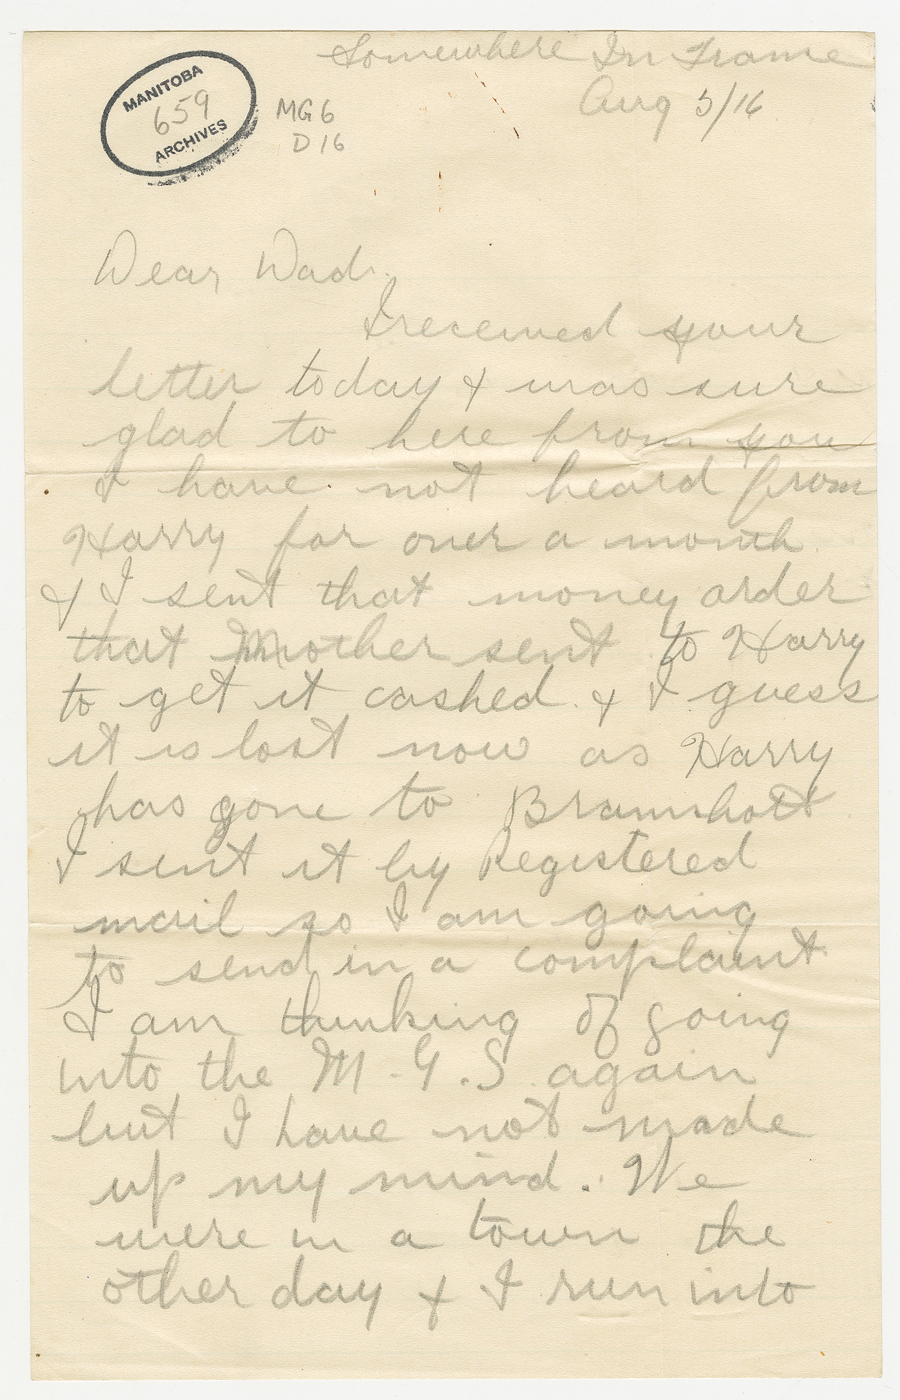 Somewhere In France
Aug 5/16
MANITOBA
659
ARCHIVES
MG6
D16
Dear Dad.
I received your
letter today & was sure
glad to here from you
I have not heard from
Harry for over a month.
& I sent that money order
that Mother sent to Harry
to get it cashed. & I guess
it is lost now as Harry
has gone to Bramshott
I sent it by Registered
mail so I am going
to send in a complaint.
I am thinking of going
into the M.G.S. again
but I have not made
up my mind. We
were in a town the
other day & I run into